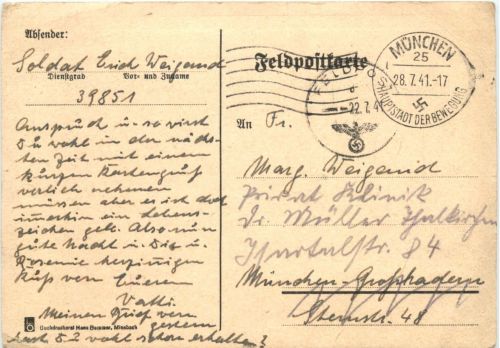 Absender:
Soldat Erich Weigand
Dienstgrad Vor- und Zuname
39851
Anspruch u. so wirst
Du wohl in der näch-
sten Zeit mit einem
kurzen Kartengruß
vorlieb nehmen
müssen aber es ist doch
immerhin ein Lebens-
zeichen geb. Also nun
gute Nacht u. Dir u.
Rosemie herzinnigen
Kuß von Eueren
Vatti
Meinen Brief von
gestern
hast Du wohl schon erhalten?
Buchdruckerei Hans Bommer, Miesbach
Feldpostkarte
FELDPO
d
22.7.4
MÜNCHEN
25
28.7.41.-17
HAUPTSTADT DER BEWEGUNG
An Fr.
Marg. Weigand
Privat Klinik
Dr. Müller Thalkirchen
Isartalstr. 84
München-Großhadern
Sternstr. 48